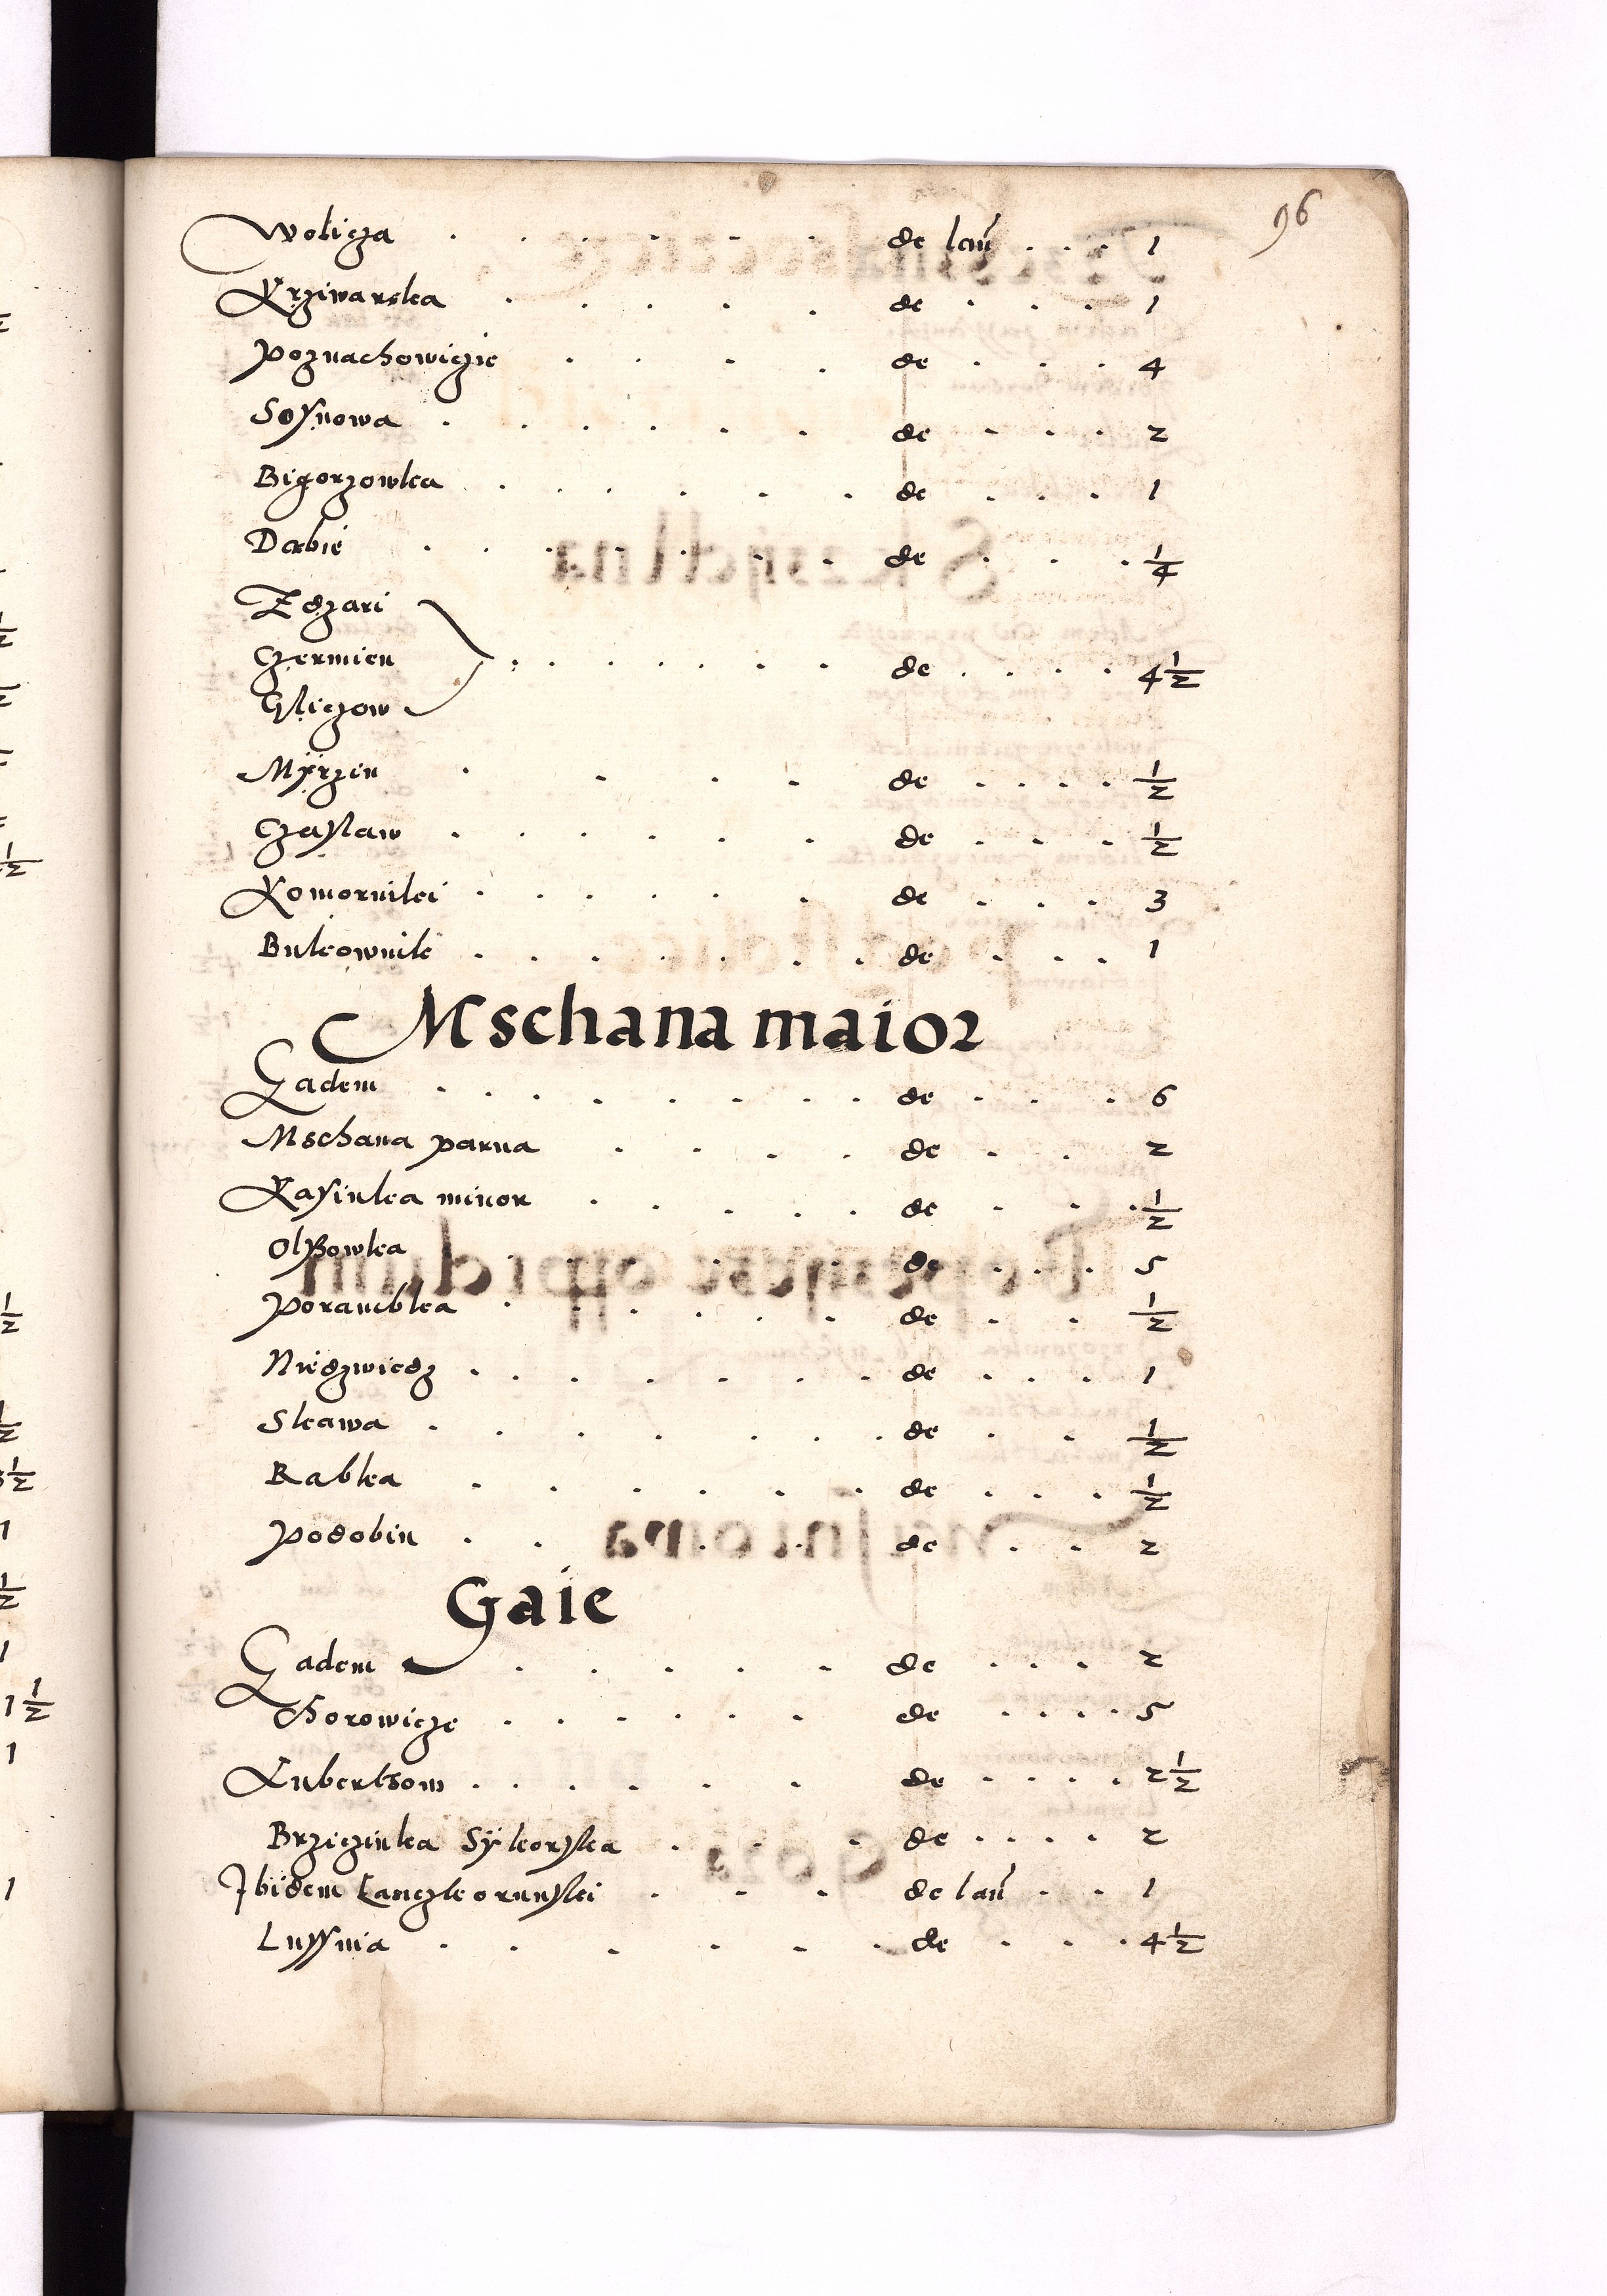 96
Wolicza . . . . . . de lan̄ . . . 1
Krziwarzka . . . . . de . . . 1
Poznachowiczie . . . . de . . . 4
Sosnowa . . . . . . de . . . 2
Bigorzowka . . . . . . de . . . 1
Dąbie . . . . . . . de . . . 1/4
Zdzari
Czermien . . . . . . de . . . . 4 1/2
Gliczow
Mÿrzen . . . . de . . . . 1/2
Czaslaw . . . . . . de . . . 1/2
Komorniki . . . . . . de . . . 3
Bukownik . . . . . . . de . . . 1
Mschana maior
Eadem . . . . . . . . de . . . 6
Mschana parua . . . . de . . 2
Kasinka minor . . . . . de . . . 1/2
Olßowka . . . . . de . . . 5
Porambka . . . . . de . . 1/2
Niedzwiedz . . . . . . . de . . . 1
Skawa . . . . . . . de . . 1/2
Rabka . . . . . . de . . . 1/2
Podobin . . . . de . . 2
Gaie
Eadem . . . . . de . . . 2
Chorowicze . . . . . . de . . . . 5
Lubertow . . . . . . de . . . . 2 1/2
Brzezinka Sÿkorska . . . de . . . . 2
Ibidem . . . de lan̄ . . 1
Lussina . . . . . . de . . . 4 1/2